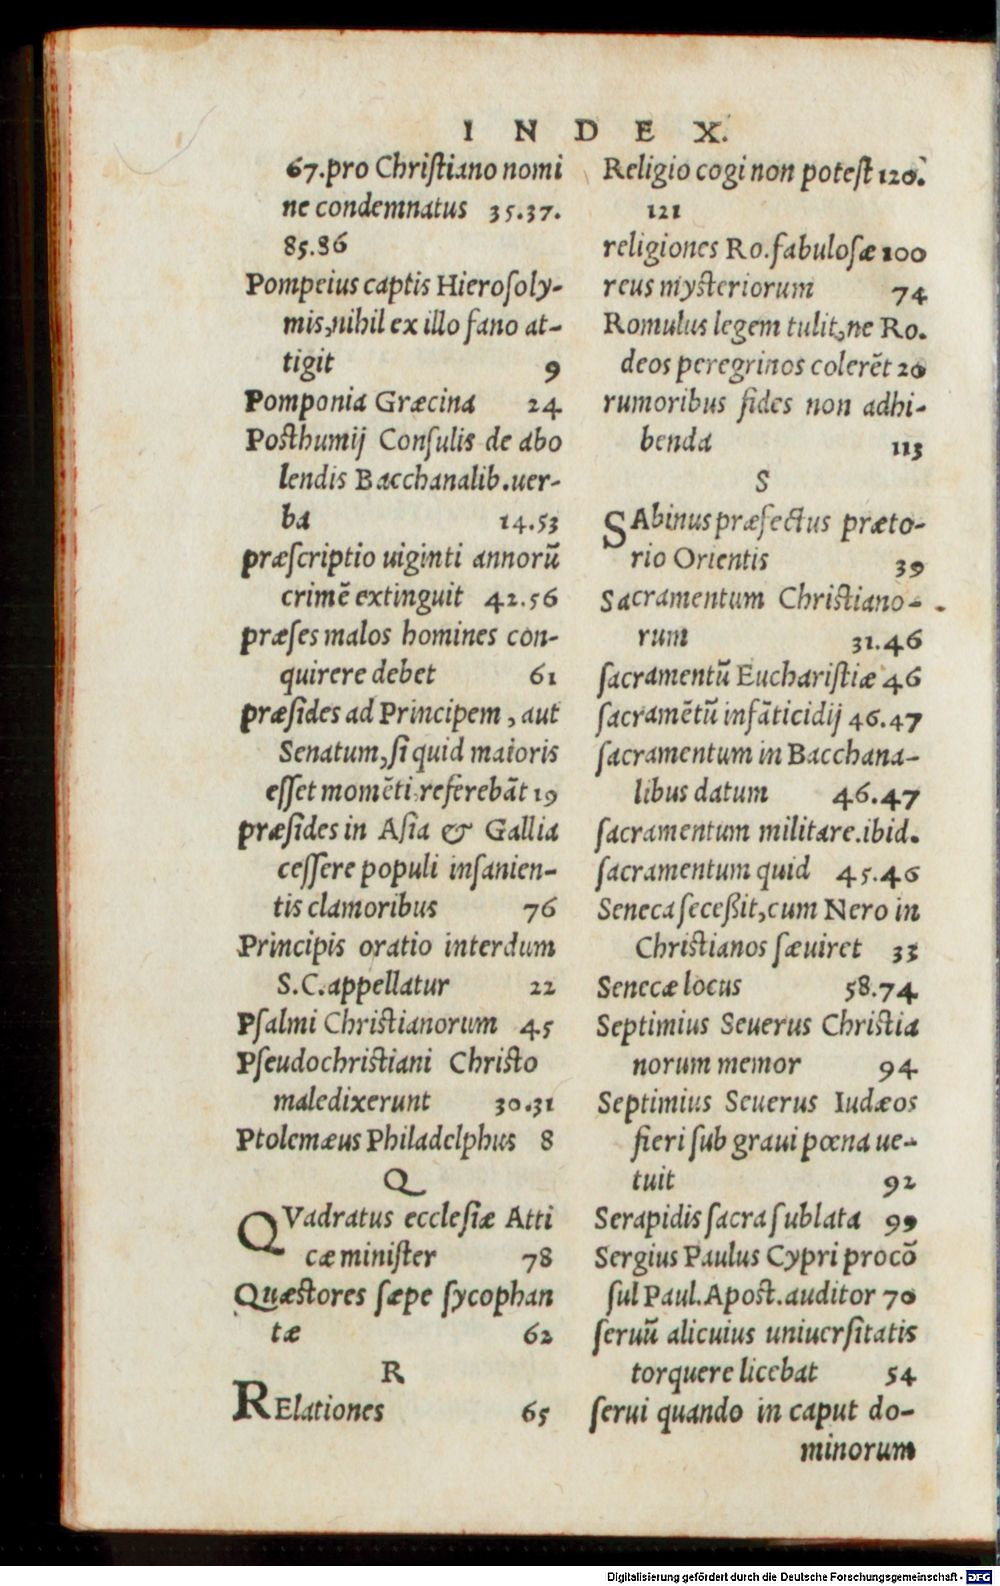 INDEX.
67.pro Chriſtiano nomi
ne condemnatus 35.37.
85.86
Pompeius captis Hieroſoly-
mis,nihil ex illo fano at-
tigit 9
Pomponia Græcina 24
Poſthumij Conſulis de abo
lendis Bacchanalib.uer-
ba 14.53
præſcriptio uiginti annorũ
crimẽ extinguit 42.56
præſes malos homines con-
quirere debet 61
præſides ad Principem, aut
Senatum,ſi quid maioris
eſſet momẽti,referebãt 19
præſides in Aſia & Gallia
ceſſere populi inſanien-
tis clamoribus 76
Principis oratio interdum
S.C.appellatur 22
Pſalmi Chriſtianorum 45
Pſeudochriſtiani Chriſto
maledixerunt 30.31
Ptolemæus Philadelphus 8
Q
QVadratus eccleſiæ Atti
cæ miniſter 78
Quæſtores ſæpe ſycophan
tæ 62
R
RElationes 65
Religio cogi non poteſt 120.
121
religiones Ro.fabuloſæ 100
reus myſteriorum 74
Romulus legem tulit,ne Ro.
deos peregrinos colerẽt 20
rumoribus fides non adhi-
benda 113
S
SAbinus præfectus præto-
rio Orientis 39
Sacramentum Chriſtiano-
rum 31.46
ſacramentũ Euchariſtiæ 46
ſacramẽtũ infãticidij 46.47
ſacramentum in Bacchana-
libus datum 46.47
ſacramentum militare.ibid.
ſacramentum quid 45.46
Seneca ſeceßit,cum Nero in
Chriſtianos ſæuiret 33
Senecæ locus 58.74
Septimius Seuerus Chriſtia
norum memor 94
Septimius Seuerus Iudæos
fieri ſub graui pœna ue-
tuit 92
Serapidis ſacra ſublata 99
Sergius Paulus Cypri procõ
ſul Paul.Apoſt.auditor 70
ſeruũ alicuius uniuerſitatis
torquere licebat 54
ſerui quando in caput do-
minorum
Digitalisierung gefördert durch die Deutsche Forschungsgemeinschaft - DFG